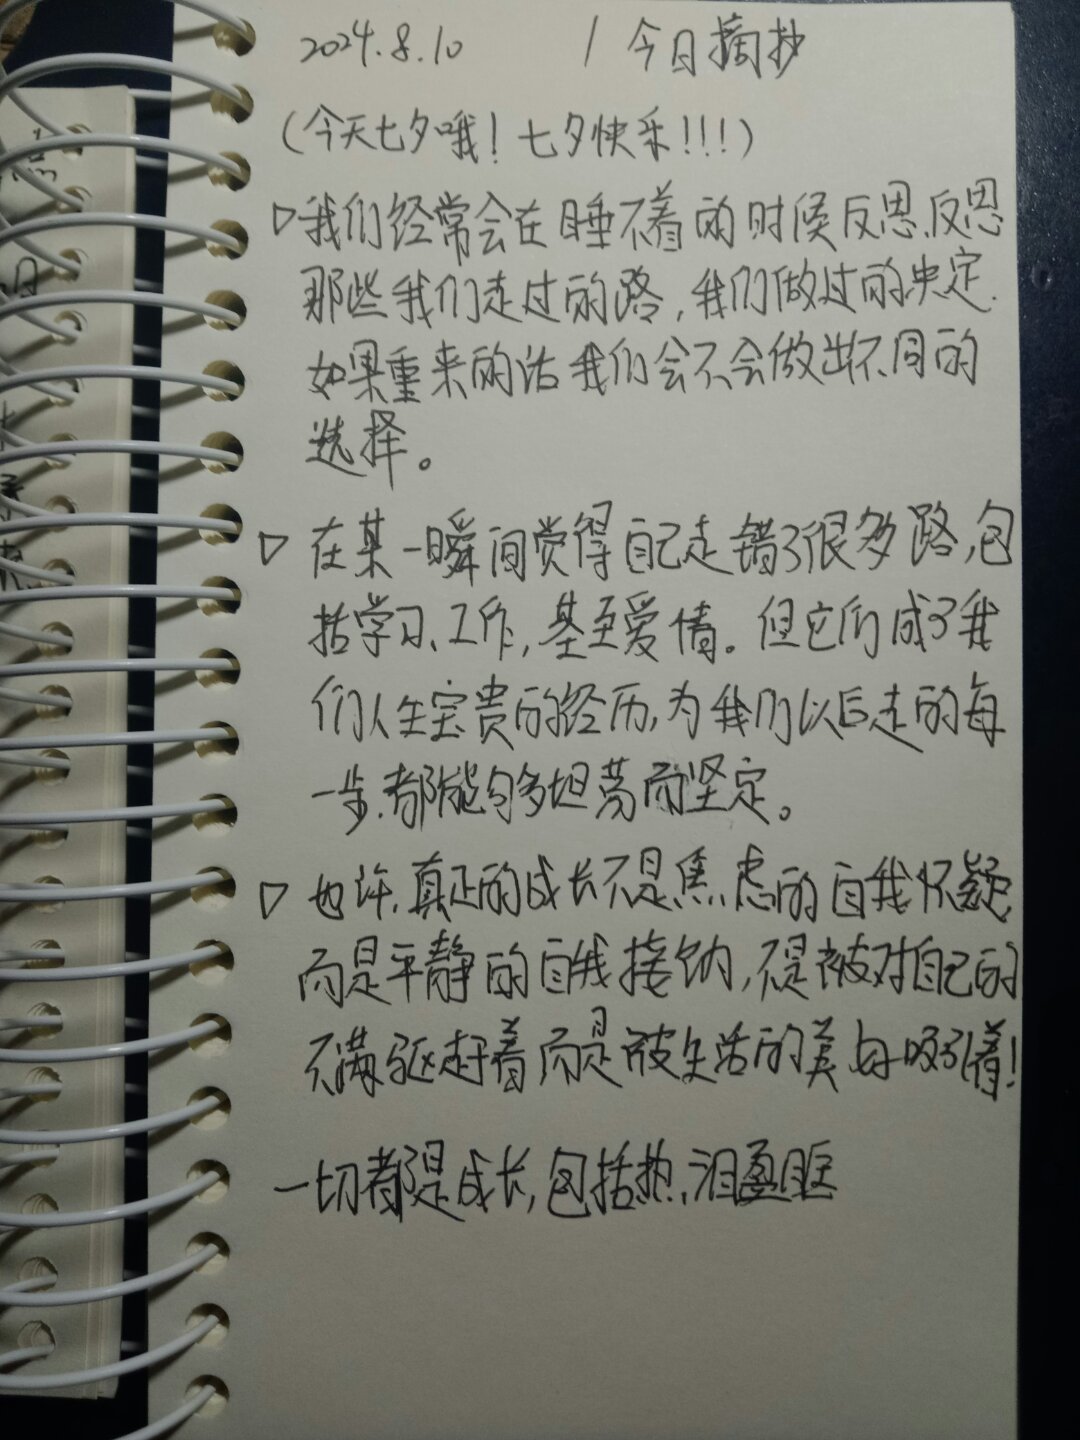 2024.8.10 / 今日摘抄
(今天七夕哦! 七夕快乐!!!)
▷我们经常会在睡不着的时候反思,反思
那些我们走过的路,我们做过的决定.
如果重来的话我们会不会做出不同的
选择。
▷在某一瞬间觉得自己走错了很多路,包
括学习、工作,甚至爱情。但它们成了我
们人生宝贵的经历,为我们以后走的每
一步,都能够多坦荡而坚定。
▷也许,真正的成长不是焦虑的自我怀疑,
而是平静的自我接纳,不是被对自己的
不满驱赶着而是被生活的美好吸引着!
一切都是成长,包括热泪盈眶